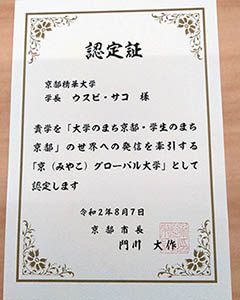 認定証
京都精華大学
学長 ウスビ・サコ 様
貴学を「大学のまち京都・学生のまち
京都」の世界への発信を牽引する
「京（みやこ）グローバル大学」として
認定します
令和2年8月7日
京都市長
門川 大作